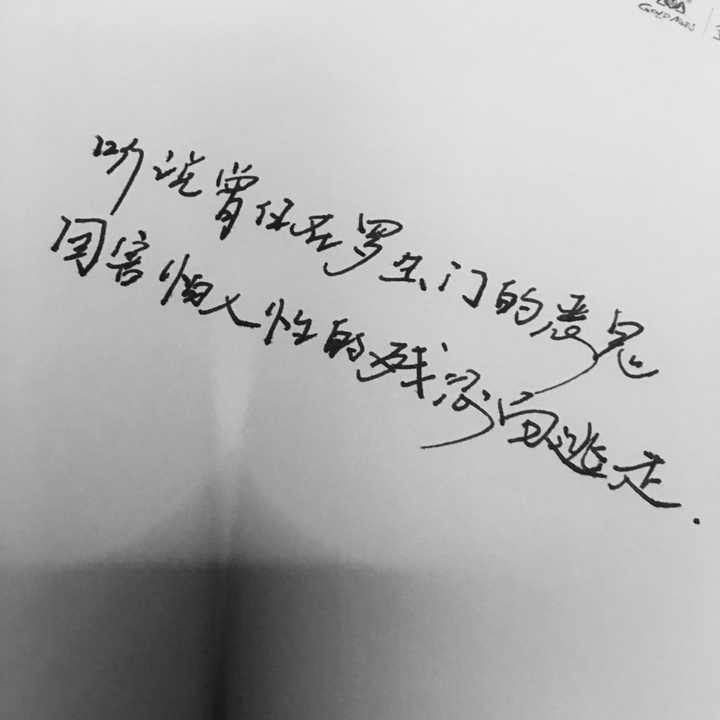 GOLD
听说曾住在罗生门的恶鬼
因害怕人性的残忍而逃走.